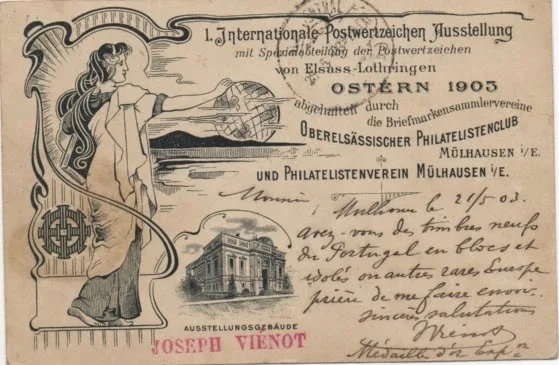 1. Internationale Postwertzeichen Ausstellung
mit Spezialabteilung der Postwertzeichen
von Elsass-Lothringen
OSTERN 1903
abgehalten durch
die Briefmarkensammlervereine
OBERELSÄSSISCHER PHILATELISTENCLUB
MÜLHAUSEN i/E.
UND PHILATELISTENVEREIN MÜLHAUSEN i/E.
Monsieur Mulhouse le 21/5 03.
avez-vous des timbres neufs
de Portugal en blocs et
isolés ou autres rares Europe
prière de me faire envoi
sincères salutations
Vienot
Médaille d'or Expon
AUSSTELLUNGSGEBÄUDE
JOSEPH VIENOT